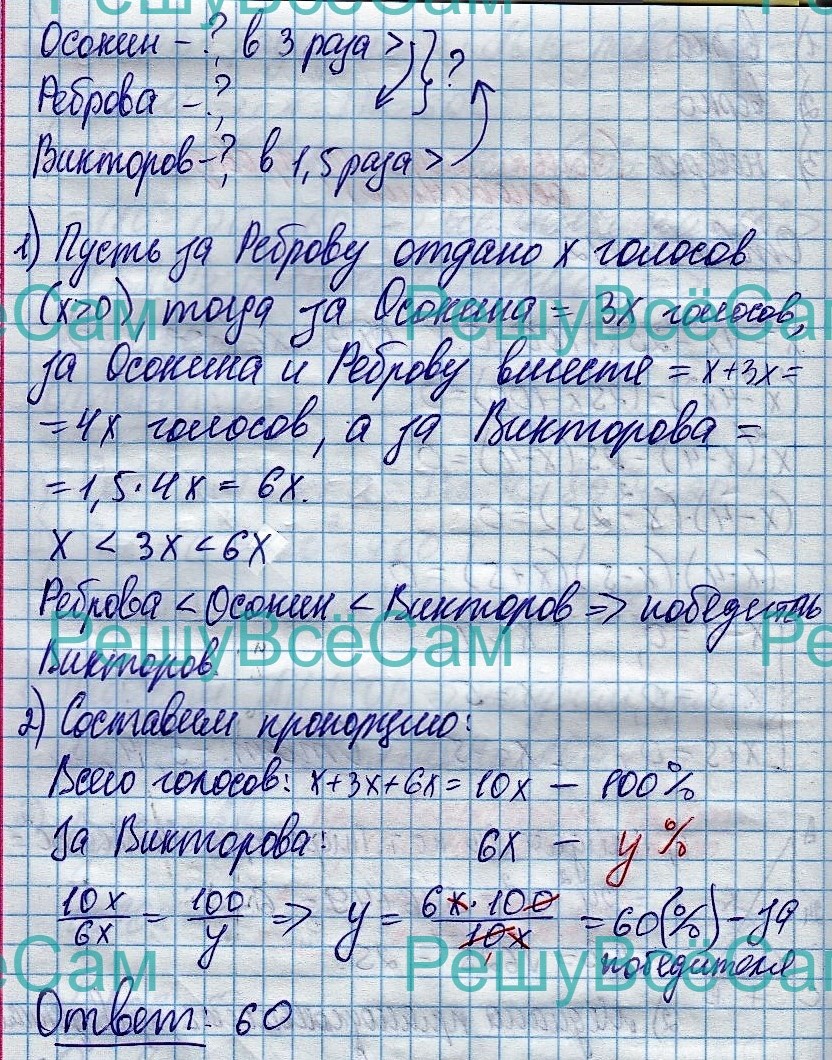 Осокин - ? в 3 раза > } ?
Реброва - ?
Викторов - ? в 1,5 раза >
1) Пусть за Реброву отдано x голосов
(x>0), тогда за Осокина = 3x голосов,
за Осокина и Реброву вместе = x+3x=
=4x голосов, а за Викторова =
=1,5·4x = 6x.
x < 3x < 6x
Реброва < Осокин < Викторов => победитель
Викторов.
2) Составим пропорцию:
Всего голосов: x+3x+6x=10x — 100%
За Викторова: 6x — y%
10x/6x = 100/y => y = 6x·100/10x = 60(%) - за
победителя
Ответ: 60
РешуВсёСам
РешуВсёСам
РешуВсёСам
РешуВсёСам